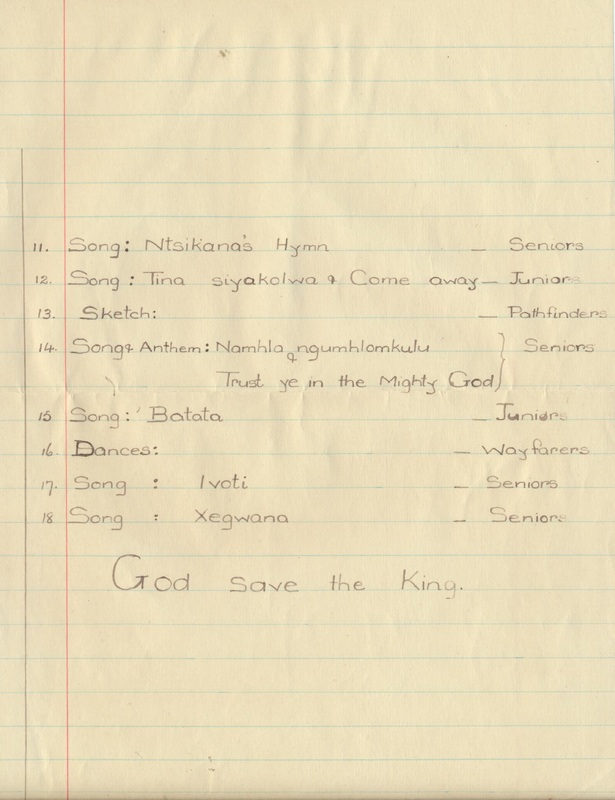 11. Song: Ntsikana's Hymn — Seniors
12. Song: Tina siyakolwa & Come away — Juniors
13. Sketch: — Pathfinders
14. Song & Anthem: Namhla ngumhlomkulu } Seniors
& Trust ye in the Mighty God
15 Song: Batata — Juniors
16. Dances: — Wayfarers
17. Song : Ivoti — Seniors
18 Song : Xegwana — Seniors
God save the King.